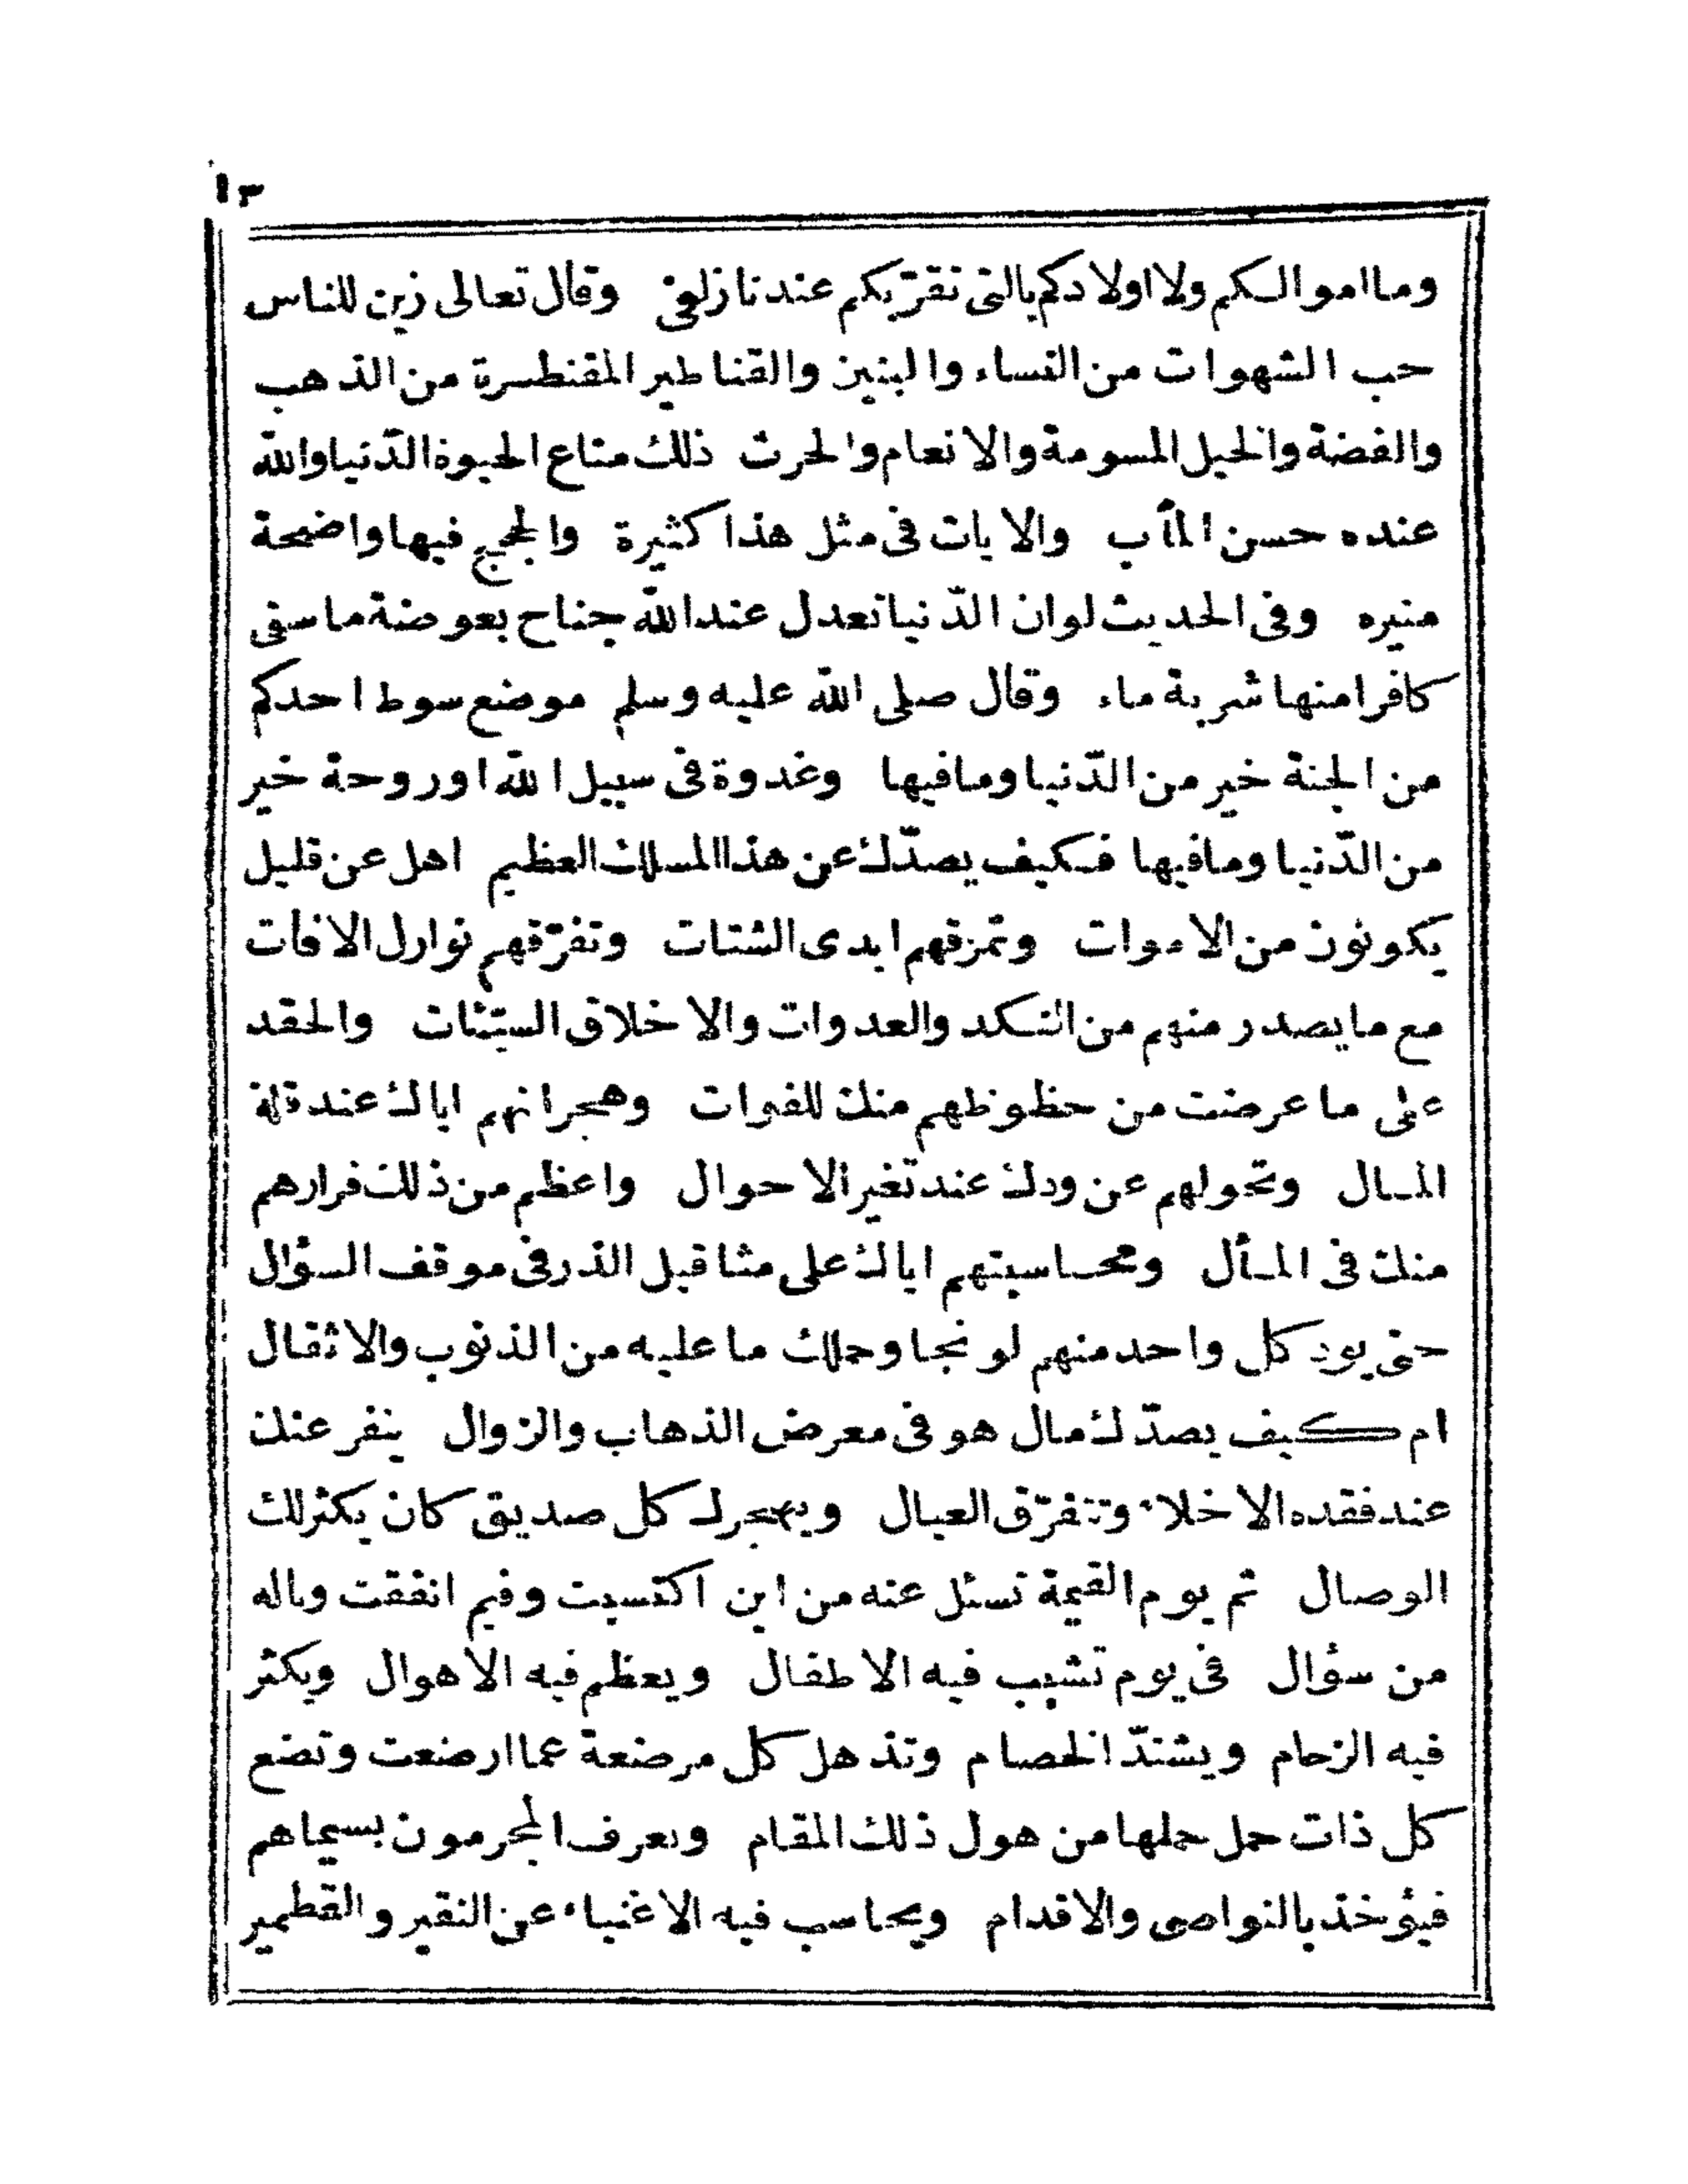 ١٣
وما اموالكم ولا اولادكم بالتى تقرّبكم عندنا زلفى وقال تعالى زين للناس
حب الشهوات من النساء والبنين والقناطير المقنطرة من الذهب
والفضة والخيل المسومة والانعام والحرث ذلك متاع الحيوة الدّنيا والله
عنده حسن المآب والايات فى مثل هذا كثيرة والحجج فيها واضحة
منيره وفى الحديث لو ان الدّنيا تعدل عند الله جناح بعوضة ما سقى
كافرا منها شربة ماء وقال صلى الله عليه وسلم موضع سوط احدكم
من الجنة خير من الدّنيا وما فيها وغدوة فى سبيل الله او روحة خير
من الدّنيا وما فيها فكيف يصدّك عن هذا المسلك العظيم اهل عن قليل
يكونون من الاموات وتمزقهم ايدى الشتات وتفرّقهم نوازل الافات
مع ما يصدر منهم من النكد والعدوات والاخلاق السيّئات والحقد
على ما عرضت من حظوظهم منك للفوات وهجرانهم اياك عند قلة
المال وتحولهم عن ودك عند تغير الاحوال واعظم من ذلك فرارهم
منك فى المأل ومحاسبتهم اياك على مثاقيل الذر فى موقف السؤال
حتى يود كل واحد منهم لو نجا وحملك ما عليه من الذنوب والاثقال
ام كيف يصدّك مال هو فى معرض الذهاب والزوال ينفر عنك
عند فقده الاخلاء وتتفرّق العيال ويهجرك كل صديق كان يكثر لك
الوصال ثم يوم القيمة تسئل عنه من اين اكتسبت وفيم انفقت وياله
من سؤال فى يوم تشيب فيه الاطفال ويعظم فيه الاهوال ويكثر
فيه الزحام ويشتدّ الخصام وتذهل كل مرضعة عما ارضعت وتضع
كل ذات حمل حملها من هول ذلك المقام ويعرف المجرمون بسيماهم
فيئوخذ بالنواصى والاقدام ويحاسب فيه الاغنياء عن النقير والقطمير